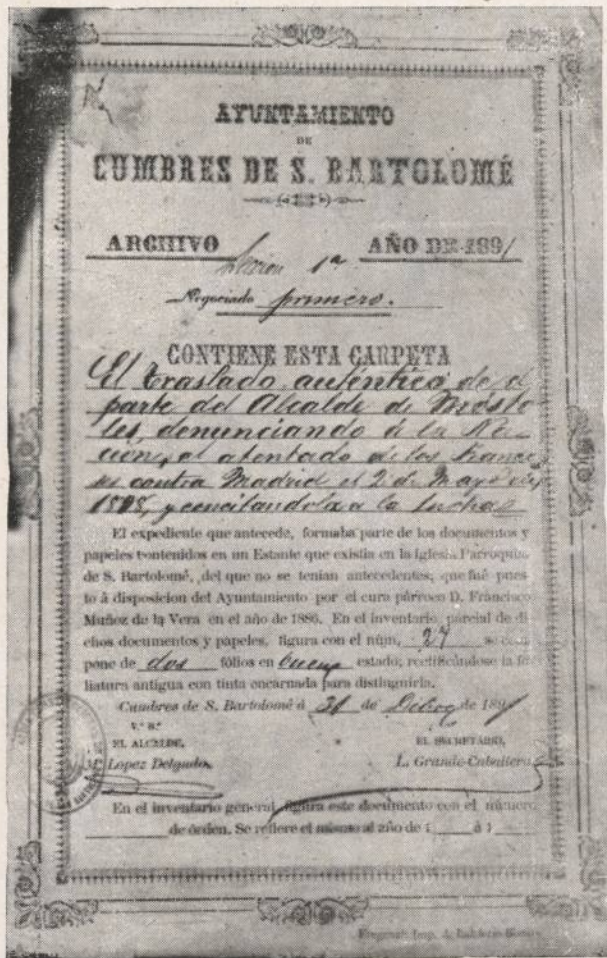 AYUNTAMIENTO
DE
CUMBRES DE S. BARTOLOMÉ
ARCHIVO AÑO DE 1891
Seccion 1ª
Negociado primero.
CONTIENE ESTA CARPETA
El traslado auténtico de el
parte del Alcalde de Mósto
les, denunciando á la Na-
cion, el atentado de los France
ses contra Madrid el 2 de Mayo de
1808, y concitandola a la lucha
El expediente que antecede, formaba parte de los documentos y
papeles contenidos en un Estante que existia en la Iglesia Parroquial
de S. Bartolomé, del que no se tenian antecedentes, que fué pues-
to á disposicion del Ayuntamiento por el cura párroco D. Francisco
Muñoz de la Vera en el año de 1886. En el inventario parcial de di
chos documentos y papeles, figura con el núm. 27 se com
pone de dos fólios en buen estado; rectificándose la fo
liatura antigua con tinta encarnada para distinguirla.
Cumbres de S. Bartolomé á 31 de Dcbre de 1891
V.º B.º
EL ALCALDE, EL SECRETARIO,
Lopez Delgado. L. Grande-Caballero
En el inventario general figura este documento con el número
de órden. Se refiere el mismo al año de 1 á 1
Fregenal: Imp. A.